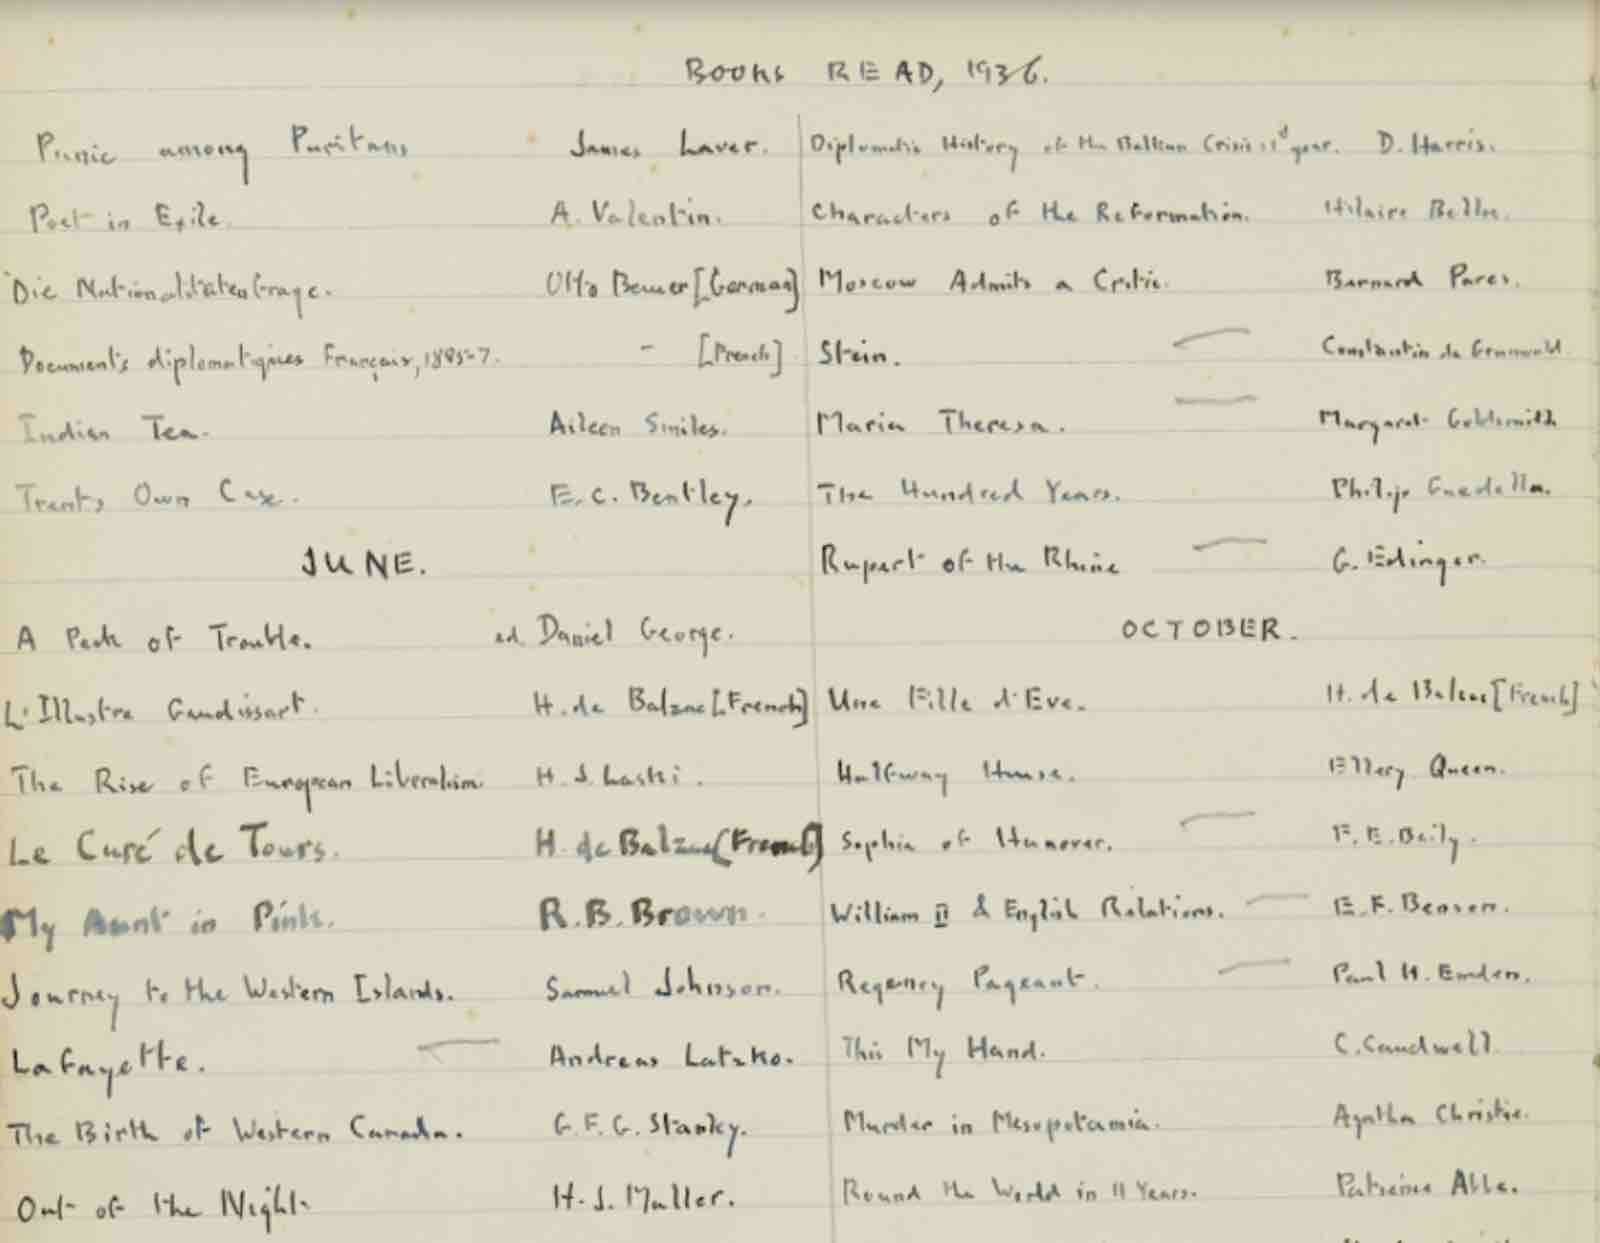 BOOKS READ, 1936.
Panic among Puritans James Laver.
Poet in Exile. A. Valentin.
Die Nationalitätenfrage. Otto Bauer [German]
Documents diplomatiques Français, 1895-7. - [French]
Indian Tea. Aileen Smiles.
Trents Own Case. E. C. Bentley.
JUNE.
A Peck of Trouble. ed. Daniel George.
L'Illustre Gaudissart. H. de Balzac [French]
The Rise of European Liberalism. H. J. Laski.
Le Curé de Tours. H. de Balzac [French]
My Aunt in Pink. R. B. Brown.
Journey to the Western Islands. Samuel Johnson.
Lafayette. Andreas Latzko.
The Birth of Western Canada. G. F. G. Stanley.
Out of the Night H. J. Muller.
Diplomatic History of the Balkan Crisis 1st year. D. Harris.
Characters of the Reformation. Hilaire Belloc.
Moscow Admits a Critic. Bernard Pares.
Stein. Constantin de Grunwald.
Maria Theresa. Margaret Goldsmith
The Hundred Years. Philip Guedalla.
Rupert of the Rhine G. Edinger.
OCTOBER.
Une Fille d'Eve. H. de Balzac [French]
Halfway House. Ellery Queen.
Sophia of Hanover. F. E. Baily.
William II & English Relations. E. F. Benson.
Regency Pageant. Paul H. Emden.
This My Hand. C. Caudwell.
Murder in Mesopotamia. Agatha Christie.
Round the World in 11 Years. Patience Abbe.